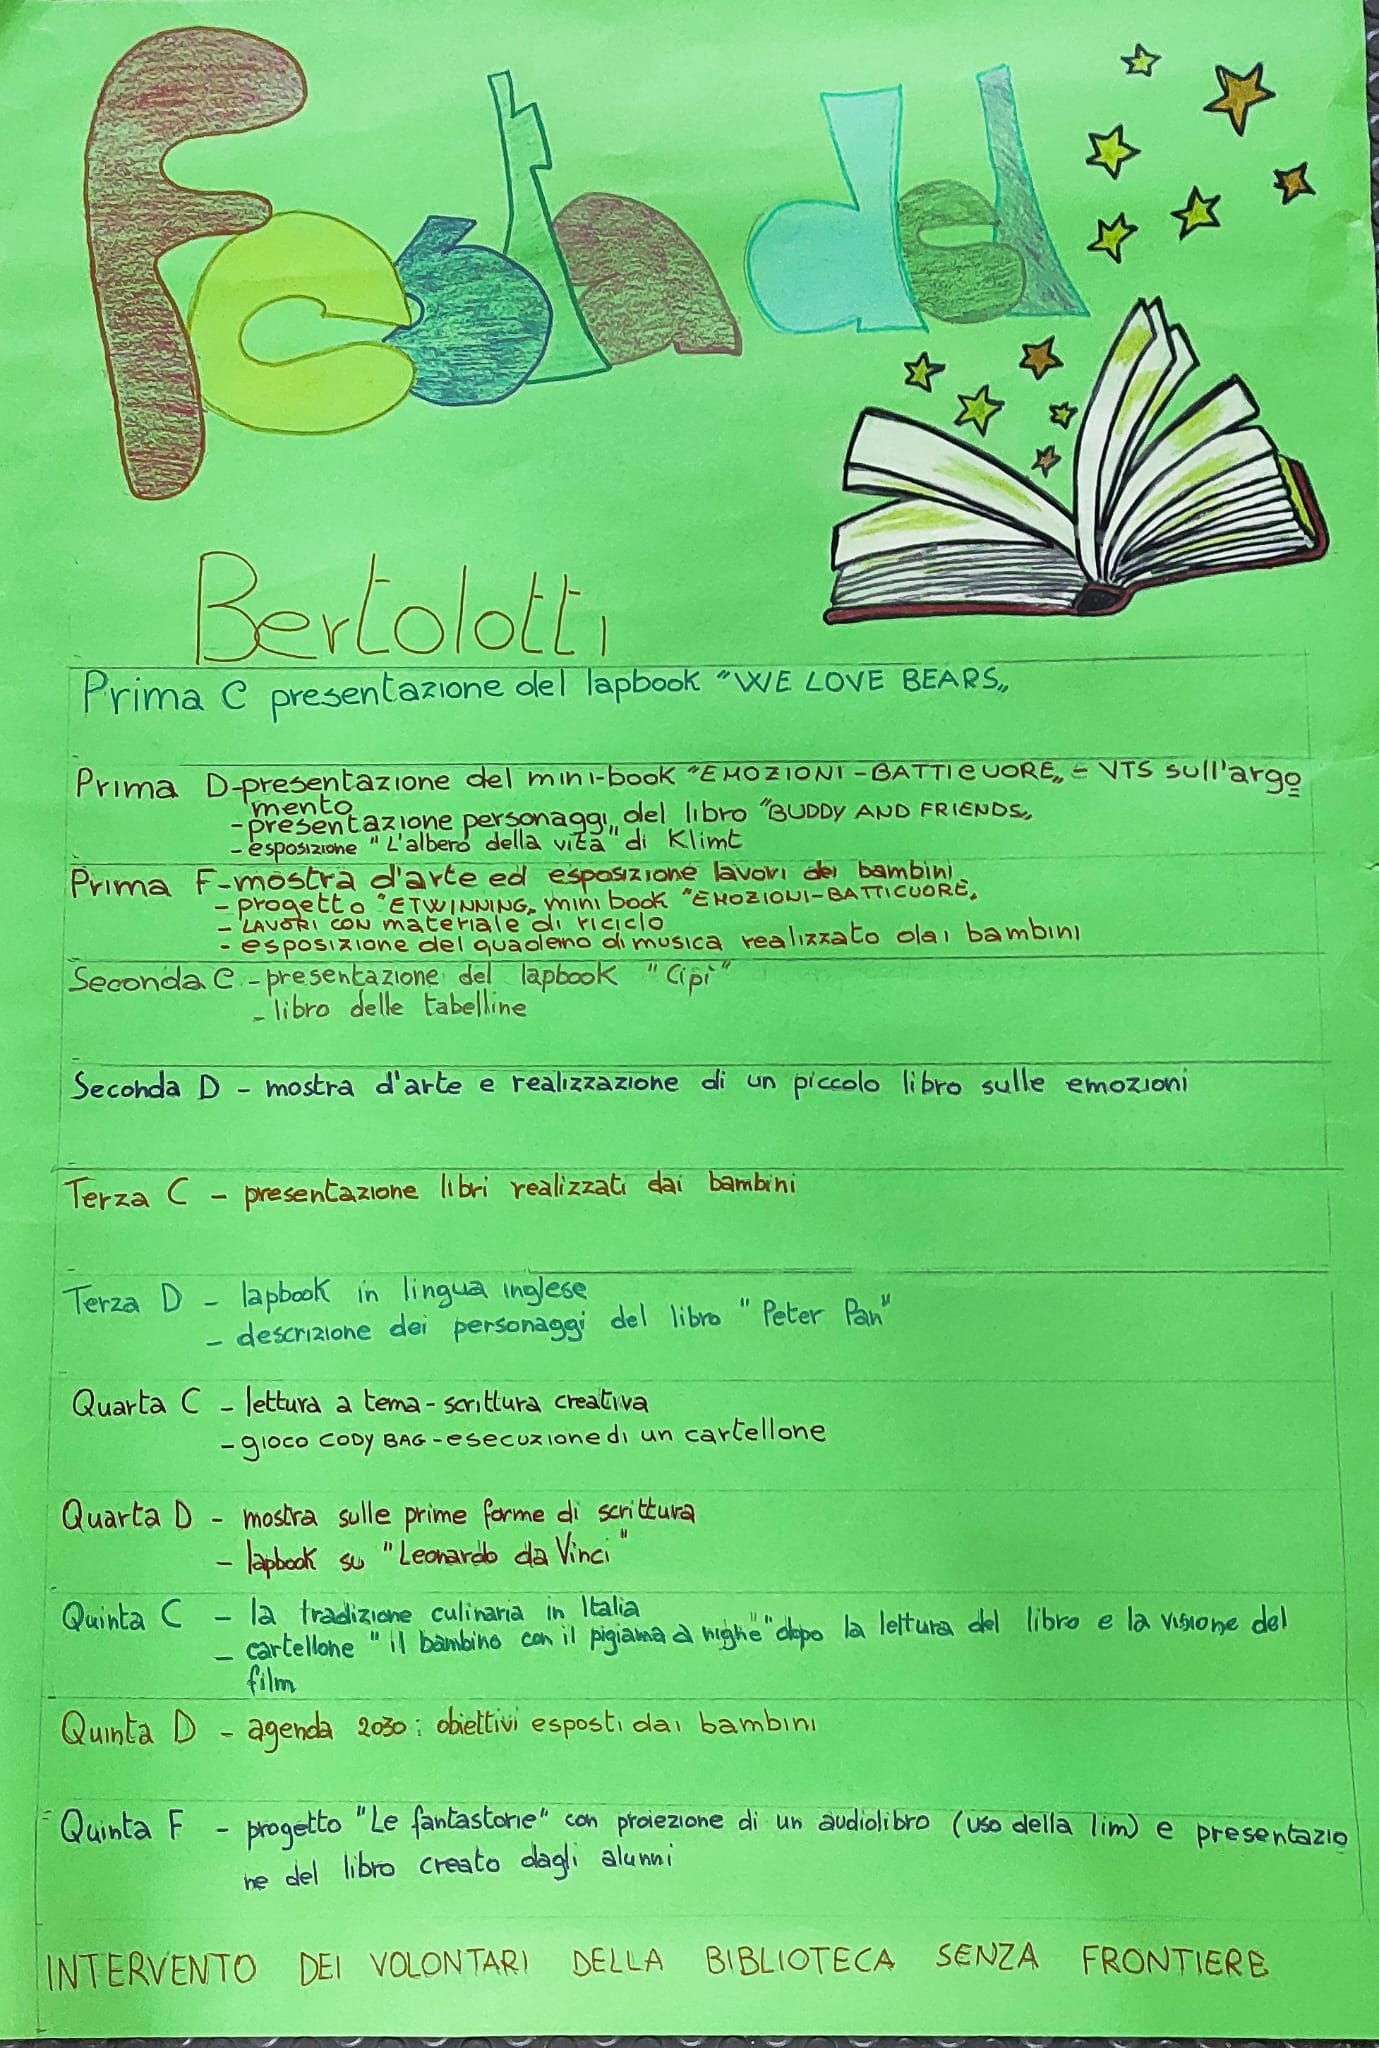 Festa del
Bertolotti
Prima C presentazione del lapbook "WE LOVE BEARS"
Prima D-presentazione del mini-book "EMOZIONI-BATTICUORE" - VTS sull'argo
mento
-presentazione personaggi del libro "BUDDY AND FRIENDS"
-esposizione "L'albero della vita" di Klimt
Prima F-mostra d'arte ed esposizione lavori dei bambini
-progetto "ETWINNING" mini book "EMOZIONI-BATTICUORE"
- LAVORI CON materiale di riciclo
- esposizione del quaderno di musica realizzato dai bambini
Seconda C -presentazione del lapbook "Cipì"
- libro delle tabelline
Seconda D - mostra d'arte e realizzazione di un piccolo libro sulle emozioni
Terza C - presentazione libri realizzati dai bambini
Terza D - lapbook in lingua inglese
- descrizione dei personaggi del libro "Peter Pan"
Quarta C - lettura a tema-scrittura creativa
-gioco CODY BAG-esecuzione di un cartellone
Quarta D - mostra sulle prime forme di scrittura
- lapbook su "Leonardo da Vinci"
Quinta C - la tradizione culinaria in Italia
- cartellone "il bambino con il pigiama a righe" dopo la lettura del libro e la visione del
film
Quinta D - agenda 2030: obiettivi esposti dai bambini
Quinta F - progetto "Le fantastorie" con proiezione di un audiolibro (uso della lim) e presentazio
ne del libro creato dagli alunni
INTERVENTO DEI VOLONTARI DELLA BIBLIOTECA SENZA FRONTIERE